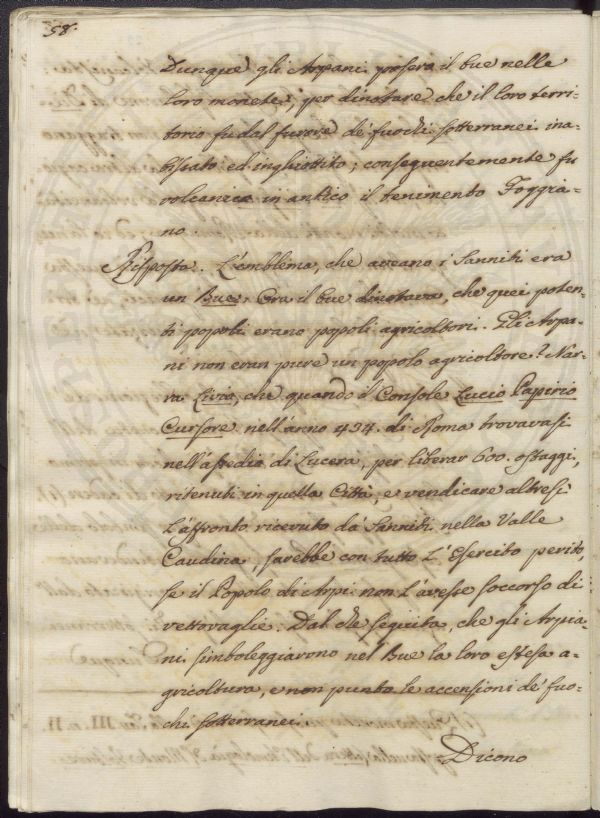 58.
Dunque gli Arpani posero il bue nelle
loro monete, per dinotare che il loro terri-
torio fu dal furore de' fuochi sotterranei ina-
bissato ed inghiottito; conseguentemente fu
volcanico in antico il tenimento Foggia-
no
Risposta. L'emblema, che aveano i Sanniti era
un Bue. Ora il bue dinotava, che quei poten-
ti popoli erano popoli agricoltori. Gli Arpa-
ni non eran pure un popolo agricoltore? Nar-
ra Livio, che quando il Console Lucio Papirio
Cursore nell'anno 434. di Roma trovavasi
nell'assedio di Lucera, per liberar 600. ostaggi,
ritenuti in quella Città, e vendicare altresì
l'affronto ricevuto da' Sanniti nella Valle
Caudina, sarebbe con tutto l'Esercito perito,
se il Popolo di Arpi non l'avesse soccorso di
vettovaglie. Dal che seguita, che gli Arpa-
ni simboleggiarono nel Bue la loro estesa a-
gricoltura, e non punto le accensioni de' fuo-
chi sotterranei.
Dicono